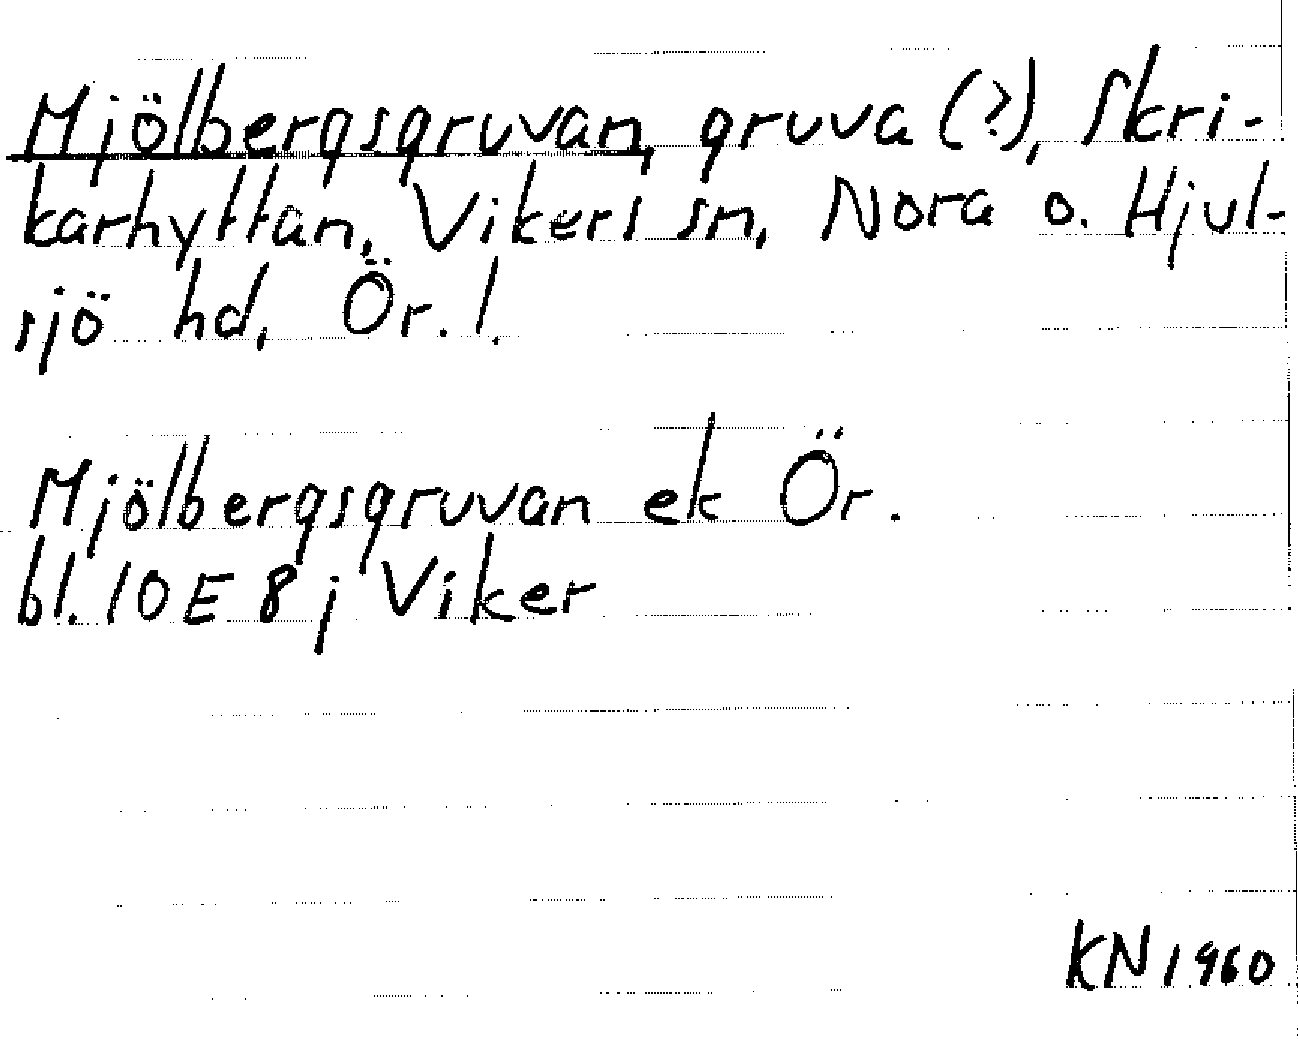 Mjölbergsgruvan, gruva (?), Skri-
karhyttan, Vikers sn, Nora o. Hjul-
sjö hd, Ör. l.
Mjölbergsgruvan ek Ör.
bl. 10 E 8 j Viker
KN 1960